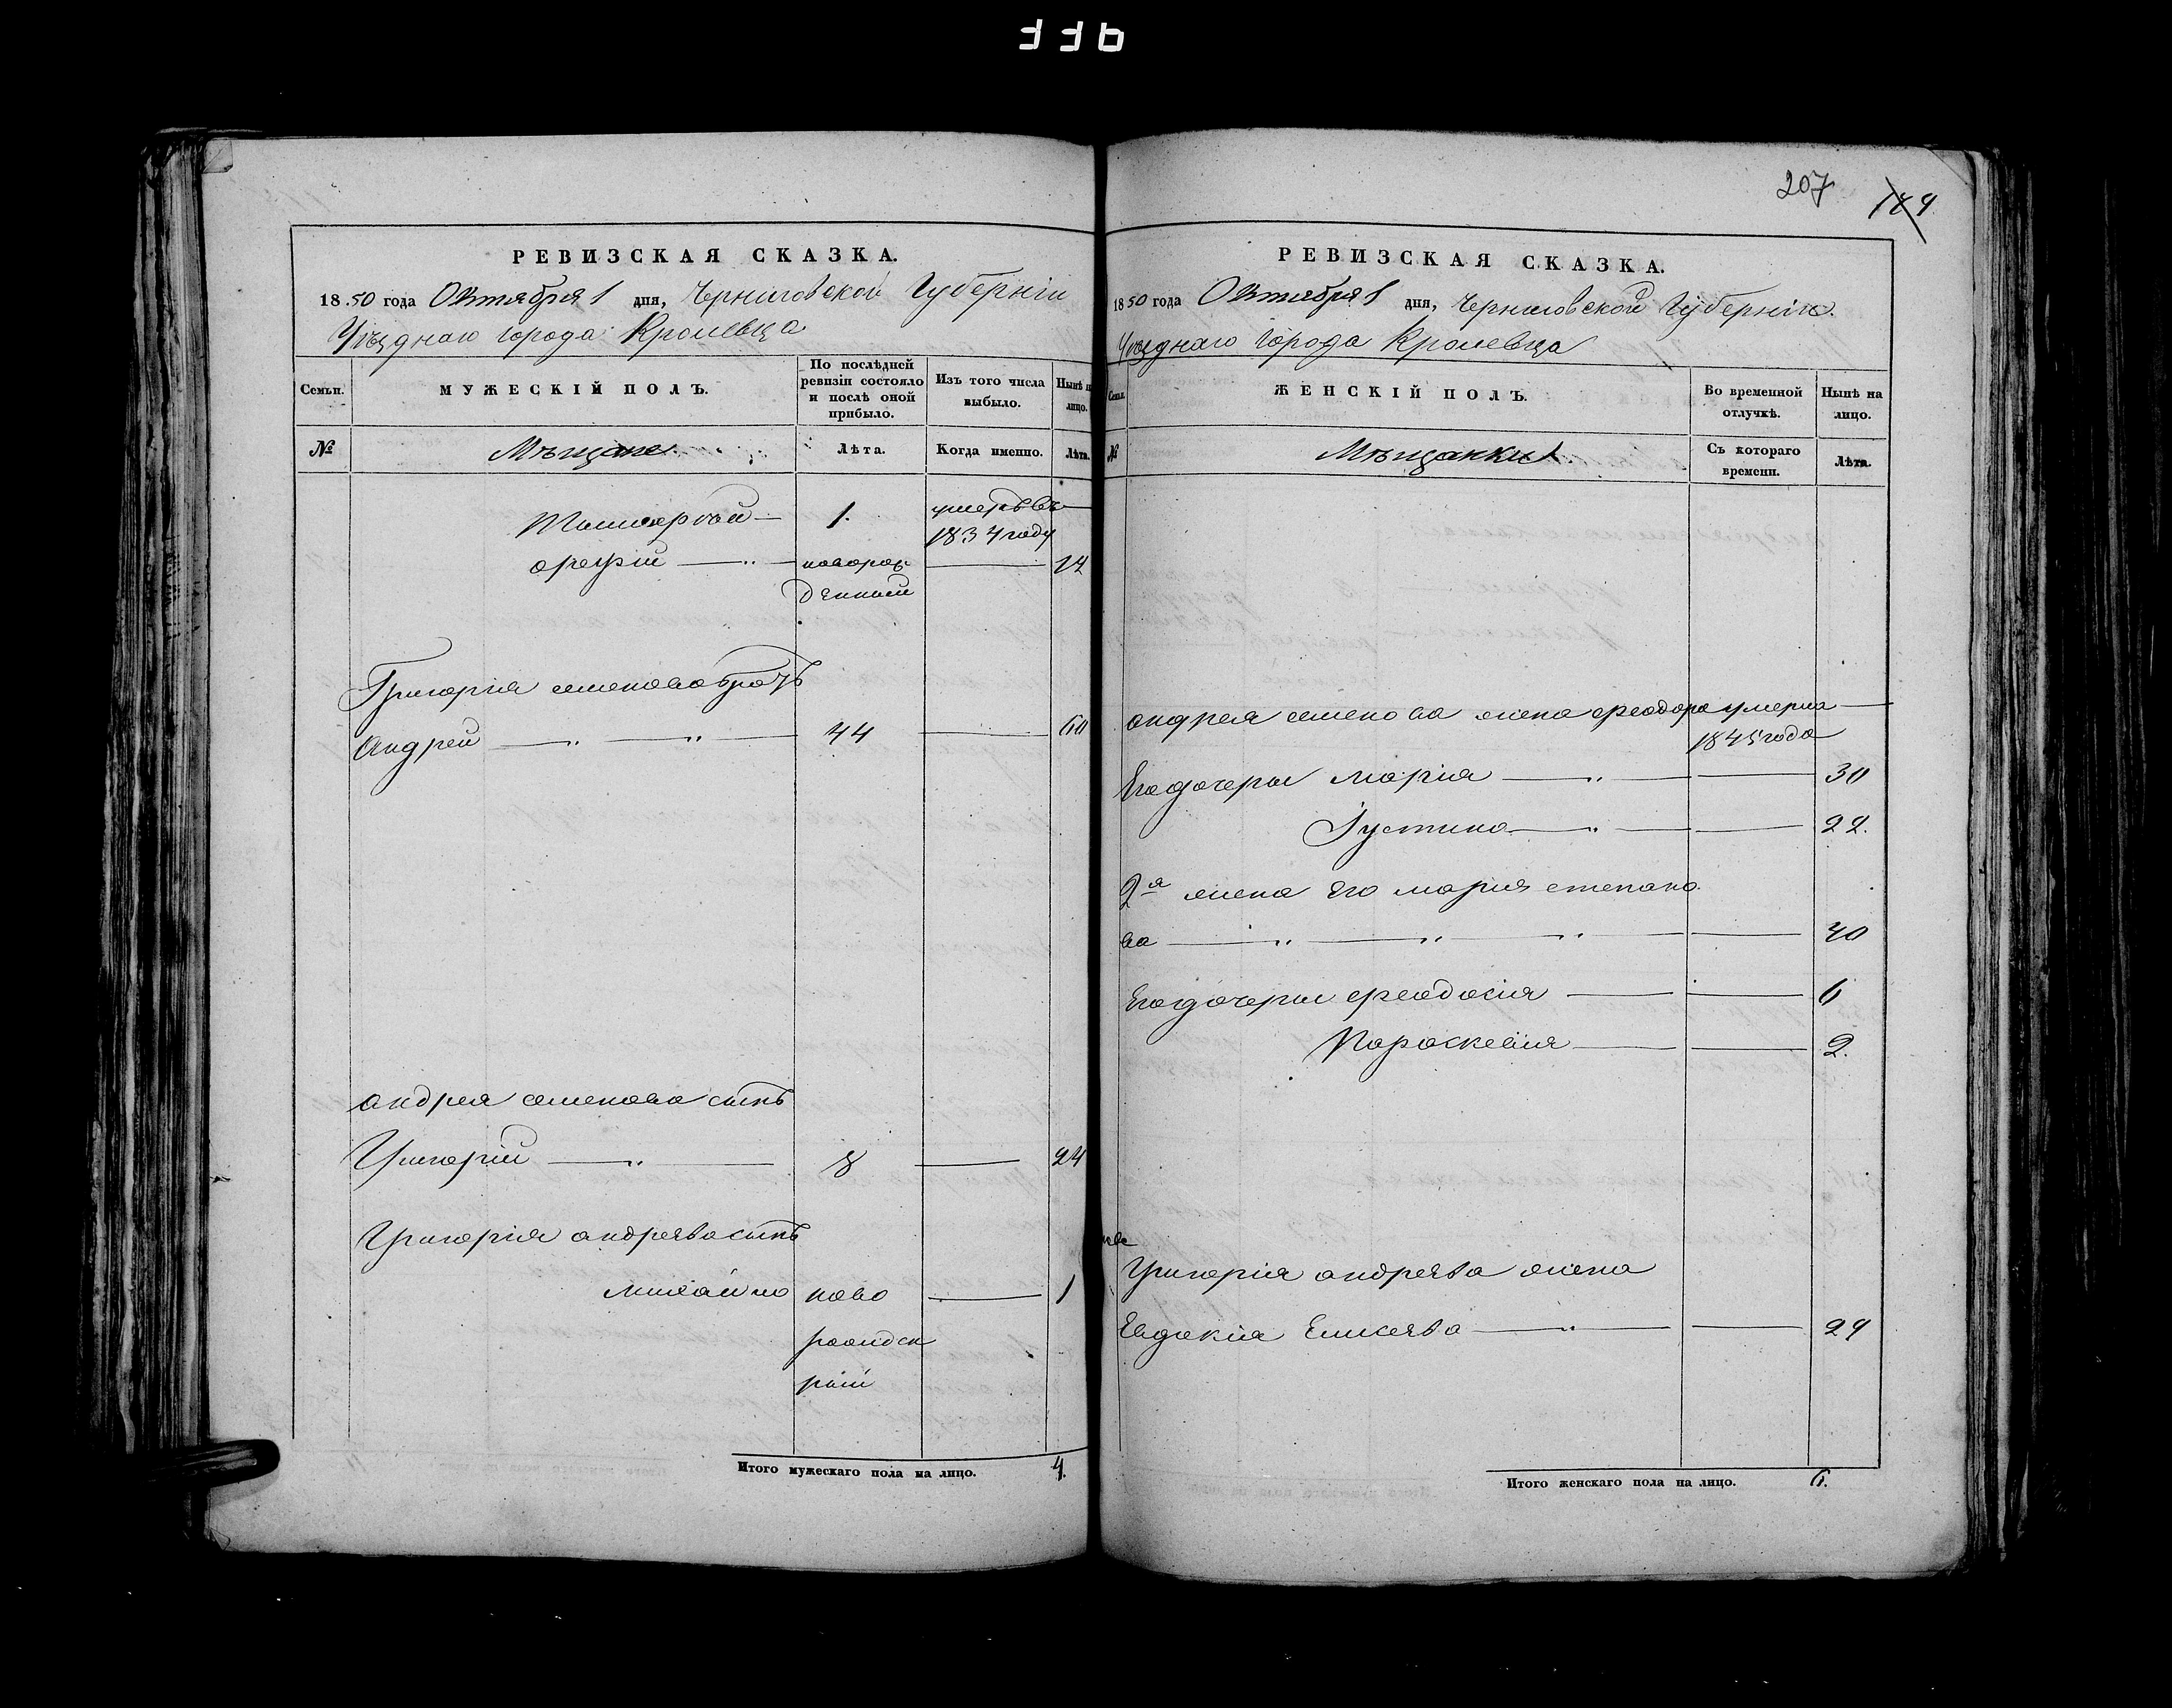 336
РЕВИЗСКАЯ СКАЗКА.
1850 года Октября 1 дня, Черниговской Губерніи
Уѣзднаго города Кролевца
Семьи.
МУЖЕСКІЙ ПОЛЪ.
По послѣдней
ревизіи состояло
и послѣ оной
прибыло.
Изъ того числа
выбыло.
Нынѣ н
лицо.
№
Мѣщане.
Лѣта.
Когда именно.
Лѣта.
1.
умеръ въ
1834 году
новорож
денный
14
Григорія семенова братъ
Андрей 44 60
андрея семенова сынъ
Григорій 8 24
Григорія андреева сынъ
михайло ново 1
рожден
Итого мужескаго пола на лицо. 4.
207
189
РЕВИЗСКАЯ СКАЗКА.
1850 года Октября 1 дня, Черниговской Губерніи.
Уѣзднаго Города Кролевца
Семьи.
ЖЕНСКІЙ ПОЛЪ.
Во временной
отлучкѣ.
Нынѣ на
лицо.
№
Мѣщанки.
Съ котораго
времени.
Лѣта.
андрея семенова жена феодора умерла
1845 года
Его дочеры марія 30
Іустина 22.
2я жена Его марія степано
ва 40
Его дочеры феодосія 6
Пораскевія 2.
Григорія андреева жена
Евдокія Елисеева 24
Итого женскаго пола на лицо. 6.